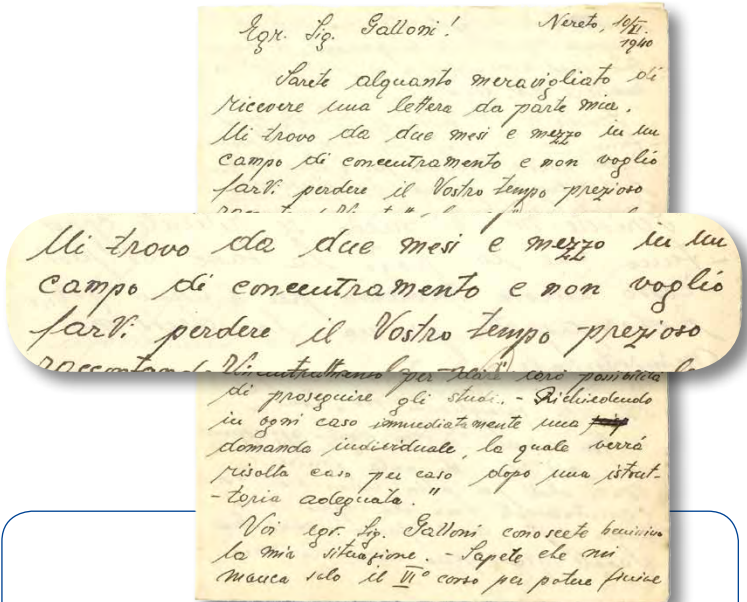 Egr. Sig. Galloni! Nereto, 10/XI 1940
Sarete alquanto meravigliato di
ricevere una lettera da parte mia.
Mi trovo da due mesi e mezzo in un
campo di concentramento e non voglio
farVi perdere il Vostro tempo prezioso
Mi trovo da due mesi e mezzo in un
campo di concentramento e non voglio
farVi perdere il Vostro tempo prezioso
raccontando
per dare loro possibilità
di proseguire gli studi. - Richiedendo
in ogni caso immediatamente una
domanda individuale, la quale verrà
risolta caso per caso dopo una istrut-
-toria adeguata."
Voi egr. Sig. Galloni conoscete benissimo
la mia situazione. - Sapete che mi
manca solo il VI° corso per potere finire